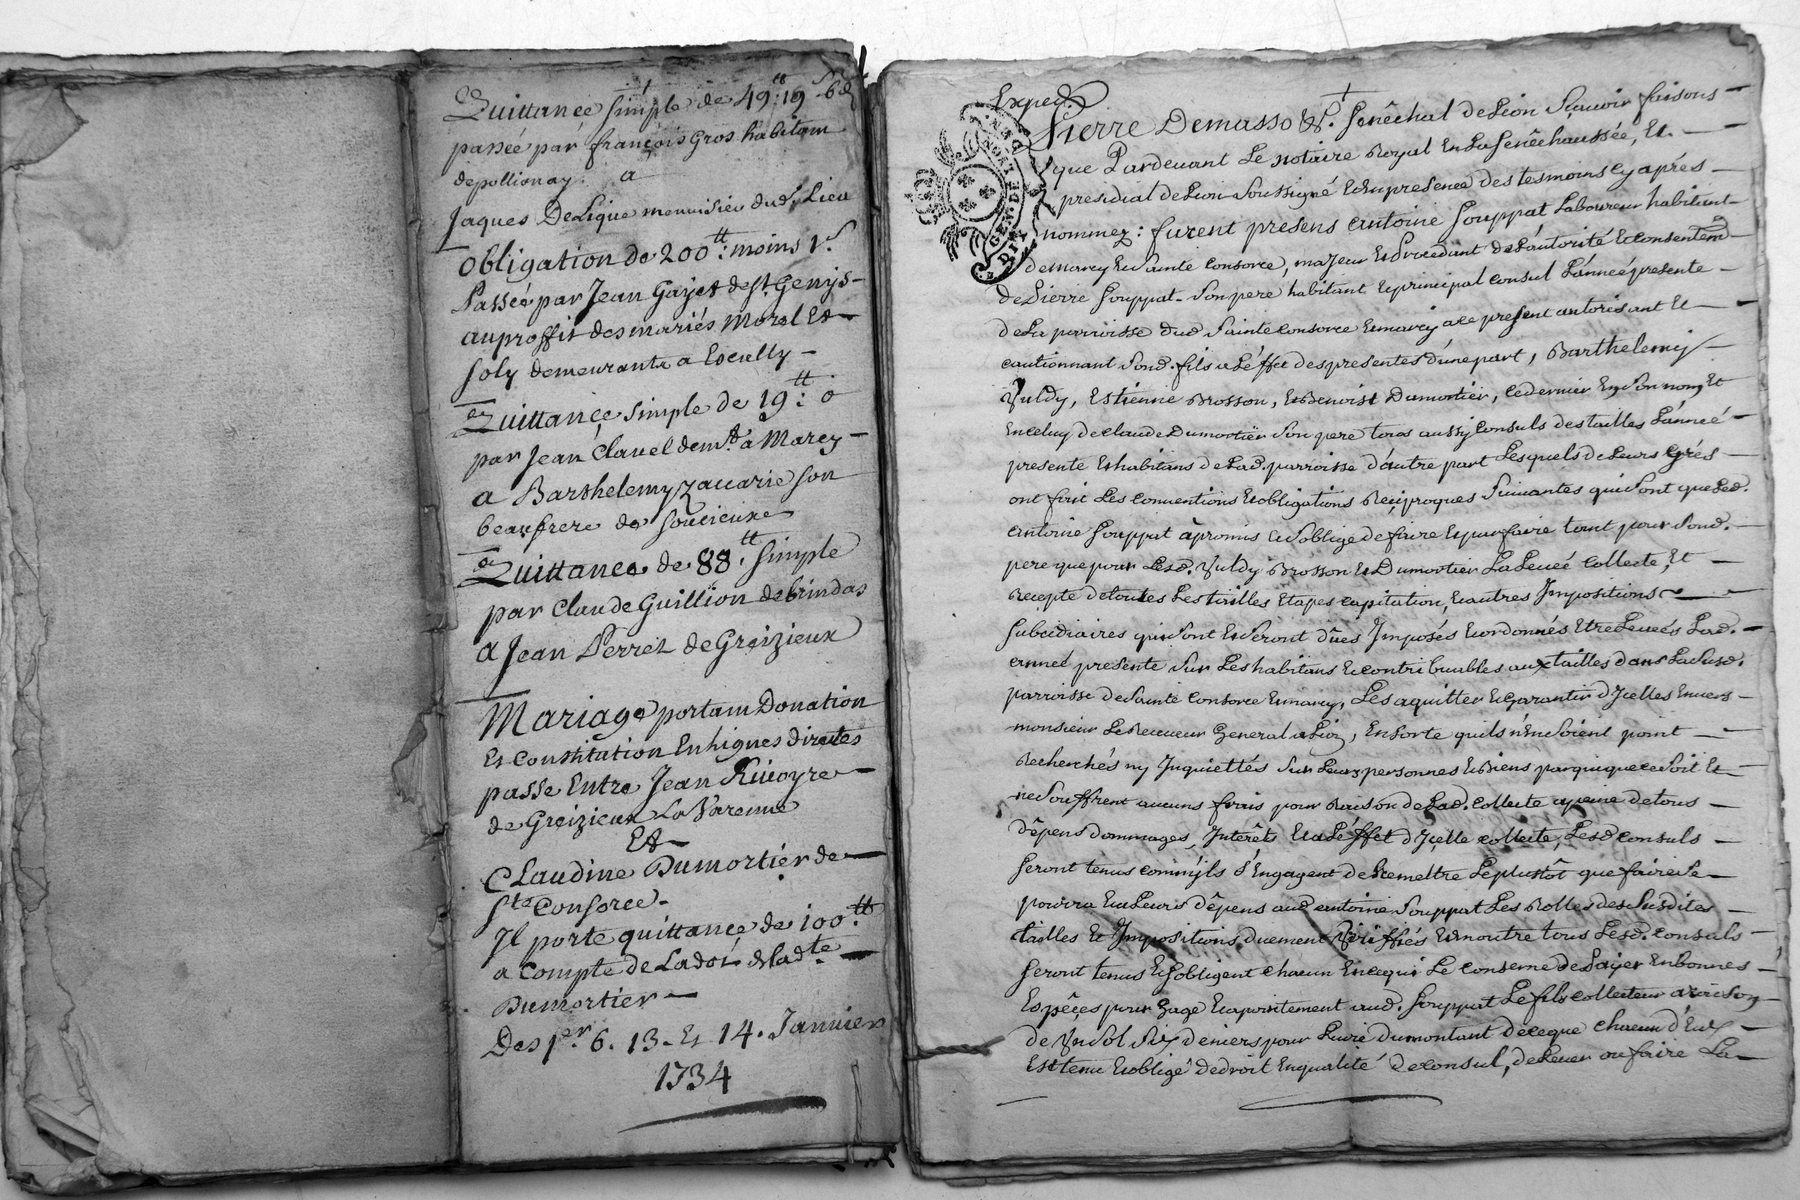 Quittance simple de 49.tt 19 s 6 d
passée par françois Gros habitam
depollionay. a
Jaques DeLique menuisier dud. Lieu
Obligation de 200.tt moins 1 s
Passée par Jean Gayet de st. Genys-
auproffit des mariés Morel Et
soly demeurants a Escully -
Quittance simple de 19.tt : o
par Jean Clavel dem.t a Marcy -
a Barthelemy zacarie son
beaufrere de Soucieux
Quittance de 88.tt simple
par Claude Guillion debrindas
a Jean Perret de Greizieux
Mariage portam Donation
Et Constitution En hignes directes
passe Entre Jean Rivoyre
de Greizieux La Varenne
Et
CLaudine Dumortier de
Ste Consorce -
Il porte quittance de 100.tt
a compte de Ladot delad.te
Dumortier -
Des 1.er 6. 13. Et 14. Janvier
1734
Exped.
Pierre Demasso &. Senêchal deLion Sçavoir faisons
que Pardevant Le notaire Royal En La Senêchaussée, Et
presidial de Lion Soussigné Et En presence des tesmoins Cy aprés
nommez : furent presens antoine Souppat Laboureur habitant
GEN. DE
demarcy Et Sainte Consorce, majeur Et Procedant de L'autorité Et Consentem.t
de Pierre Souppat Son pere habitant Et principal Consul L'année presente
de La parroisse dud Sainte Consorce Et marcy a ce present autorisant Et
cautionnant Sond. fils a L'éffet des presentes d'une part, Barthelemy
Vuldy, Estienne Brosson, Et Benoist Dumortier, ce dernier En Son nom Et
En celuy de Claude Dumortier Son pere tous aussy Consuls des tailles L'anneé
presente Et habitans de Lad. parroisse d'autre part Lesquels de Leurs Grés
ont fait Les Conventions Et obligations Reciproques Suivantes qui Sont que Led.
antoine Souppat à promis Et S'oblige de faire Et parfaire tant pour Sond.
pere que pour Lesd. Vuldy Brosson Et Dumortier La Leveé Collecte, Et
Recepte de toutes Les tailles Etapes capitation, Et autres Impositions
Subcidiaires qui Sont Et Seront dües Imposés Et ordonnés Etre Leveés Lad.
anneé presente Sur Les habitans Et contribuables aux tailles dans La Susd.
parroisse de Sainte Consorce Et marcy, Les aquitter Et Garantir d'Icelles Envers
monsieur Le Receveur General a Lion, En Sorte qu'ils n'En Soient point
Recherchés ny Inquiettés Sur Leurs personnes Et Biens par qui que ce Soit Et
ne Souffrent aucuns frais pour Raison de Lad. Collecte a peine de tous
dêpens dommages, Interêts Et a L'éffet d'Icelle collecte, Lesd Consuls
Seront tenus comm'ils S'Engagent de Remettre Le plustôt que faire Se
pourra Et a Leurs dêpens aud antoine Souppat Les Rolles des Susdites
tailles Et Impositions duement Veriffiés Et en outre tous Lesd. Consuls
Seront tenus Et S'obligent chacun En ce qui Le Concerne de Payer En bonnes
Espêces pour Gage Et apointement aud. Souppat Le fils collecteur a raison
de Un Sol Six deniers pour Livre du montant de ce que chacun d'Eux
Est tenu Et obligé de droit En qualité de Consul, de Lever ou faire La